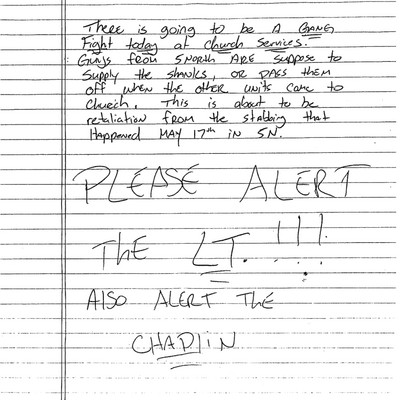 There is going to be A GANG
Fight today at church services.
Guys from 5North ARE suppose to
supply the shanks, or pass them
off when the other units come to
Church. This is about to be
retaliation from the stabbing that
Happened MAY 17th in 5N.
PLEASE ALERT
The LT. !!!
Also ALERT The
CHAPliN